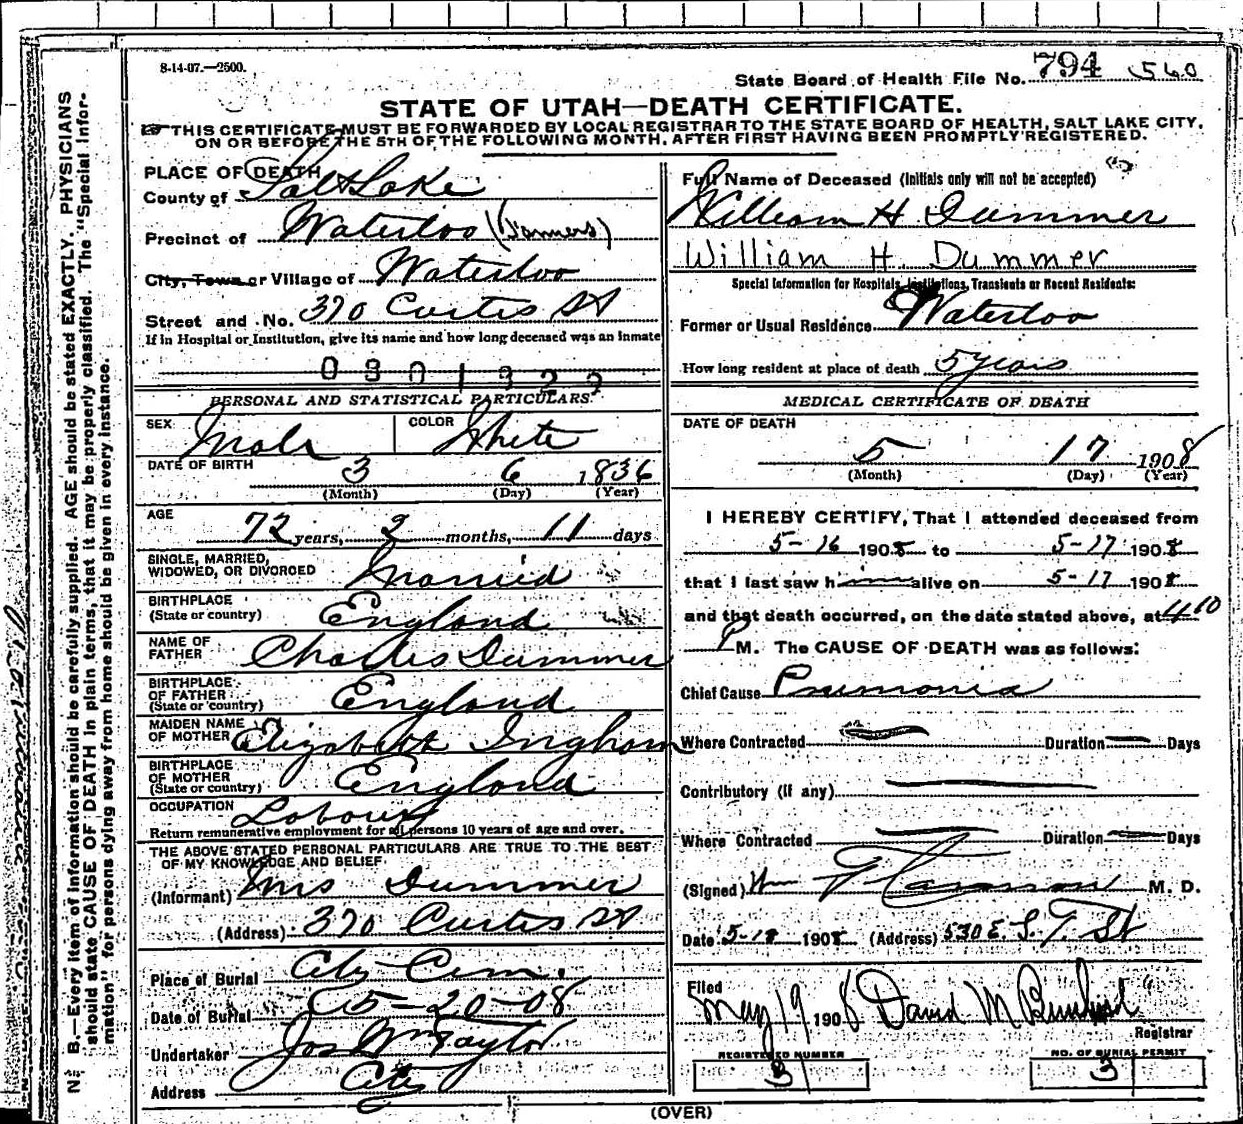 8-14-07.—2500.
State Board of Health File No. 794 560
STATE OF UTAH—DEATH CERTIFICATE.
THIS CERTIFICATE MUST BE FORWARDED BY LOCAL REGISTRAR TO THE STATE BOARD OF HEALTH, SALT LAKE CITY,
ON OR BEFORE THE 5TH OF THE FOLLOWING MONTH, AFTER FIRST HAVING BEEN PROMPTLY REGISTERED.
N. B.—Every item of information should be carefully supplied. AGE should be stated EXACTLY. PHYSICIANS
should state CAUSE OF DEATH in plain terms, that it may be properly classified. The "Special Infor-
mation" for persons dying away from home should be given in every instance.
PLACE OF DEATH
County of Salt Lake
Precinct of Waterloo (Farmers)
City, Town or Village of Waterloo
Street and No. 370 Curtis St
If in Hospital or Institution, give its name and how long deceased was an inmate
PERSONAL AND STATISTICAL PARTICULARS
SEX Male COLOR White
DATE OF BIRTH 3 6 1836
(Month) (Day) (Year)
AGE
72 years, 2 months, 11 days
SINGLE, MARRIED,
WIDOWED, OR DIVORCED Married
BIRTHPLACE
(State or country) England
NAME OF
FATHER Charles Dummer
BIRTHPLACE
OF FATHER
(State or country) England
MAIDEN NAME
OF MOTHER Elizabeth Ingham
BIRTHPLACE
OF MOTHER
(State or country) England
OCCUPATION Labourer
Return remunerative employment for all persons 10 years of age and over.
THE ABOVE STATED PERSONAL PARTICULARS ARE TRUE TO THE BEST
OF MY KNOWLEDGE AND BELIEF
(Informant) Mrs Dummer
(Address) 370 Curtis St
Place of Burial City Cem.
Date of Burial 5-20-08
Undertaker Jos Wm Taylor
Address City
Full Name of Deceased (Initials only will not be accepted)
William H Dummer
William H. Dummer
Special Information for Hospitals, Institutions, Transients or Recent Residents:
Former or Usual Residence Waterloo
How long resident at place of death 5 years
MEDICAL CERTIFICATE OF DEATH
DATE OF DEATH
5 17 1908
(Month) (Day) (Year)
I HEREBY CERTIFY, That I attended deceased from
5-16 1908 to 5-17 1908
that I last saw him alive on 5-17 1908
and that death occurred, on the date stated above, at 4 10
P M. The CAUSE OF DEATH was as follows:
Chief Cause Pneumonia
Where Contracted Duration Days
Contributory (if any)
Where Contracted Duration Days
(Signed) Wm M. D.
Date 5-18 1908 (Address) 530 E. S. T. St
Filed
May 19 1908 David M
Registrar
REGISTERED NUMBER
3
NO. OF BURIAL PERMIT
3
(OVER)